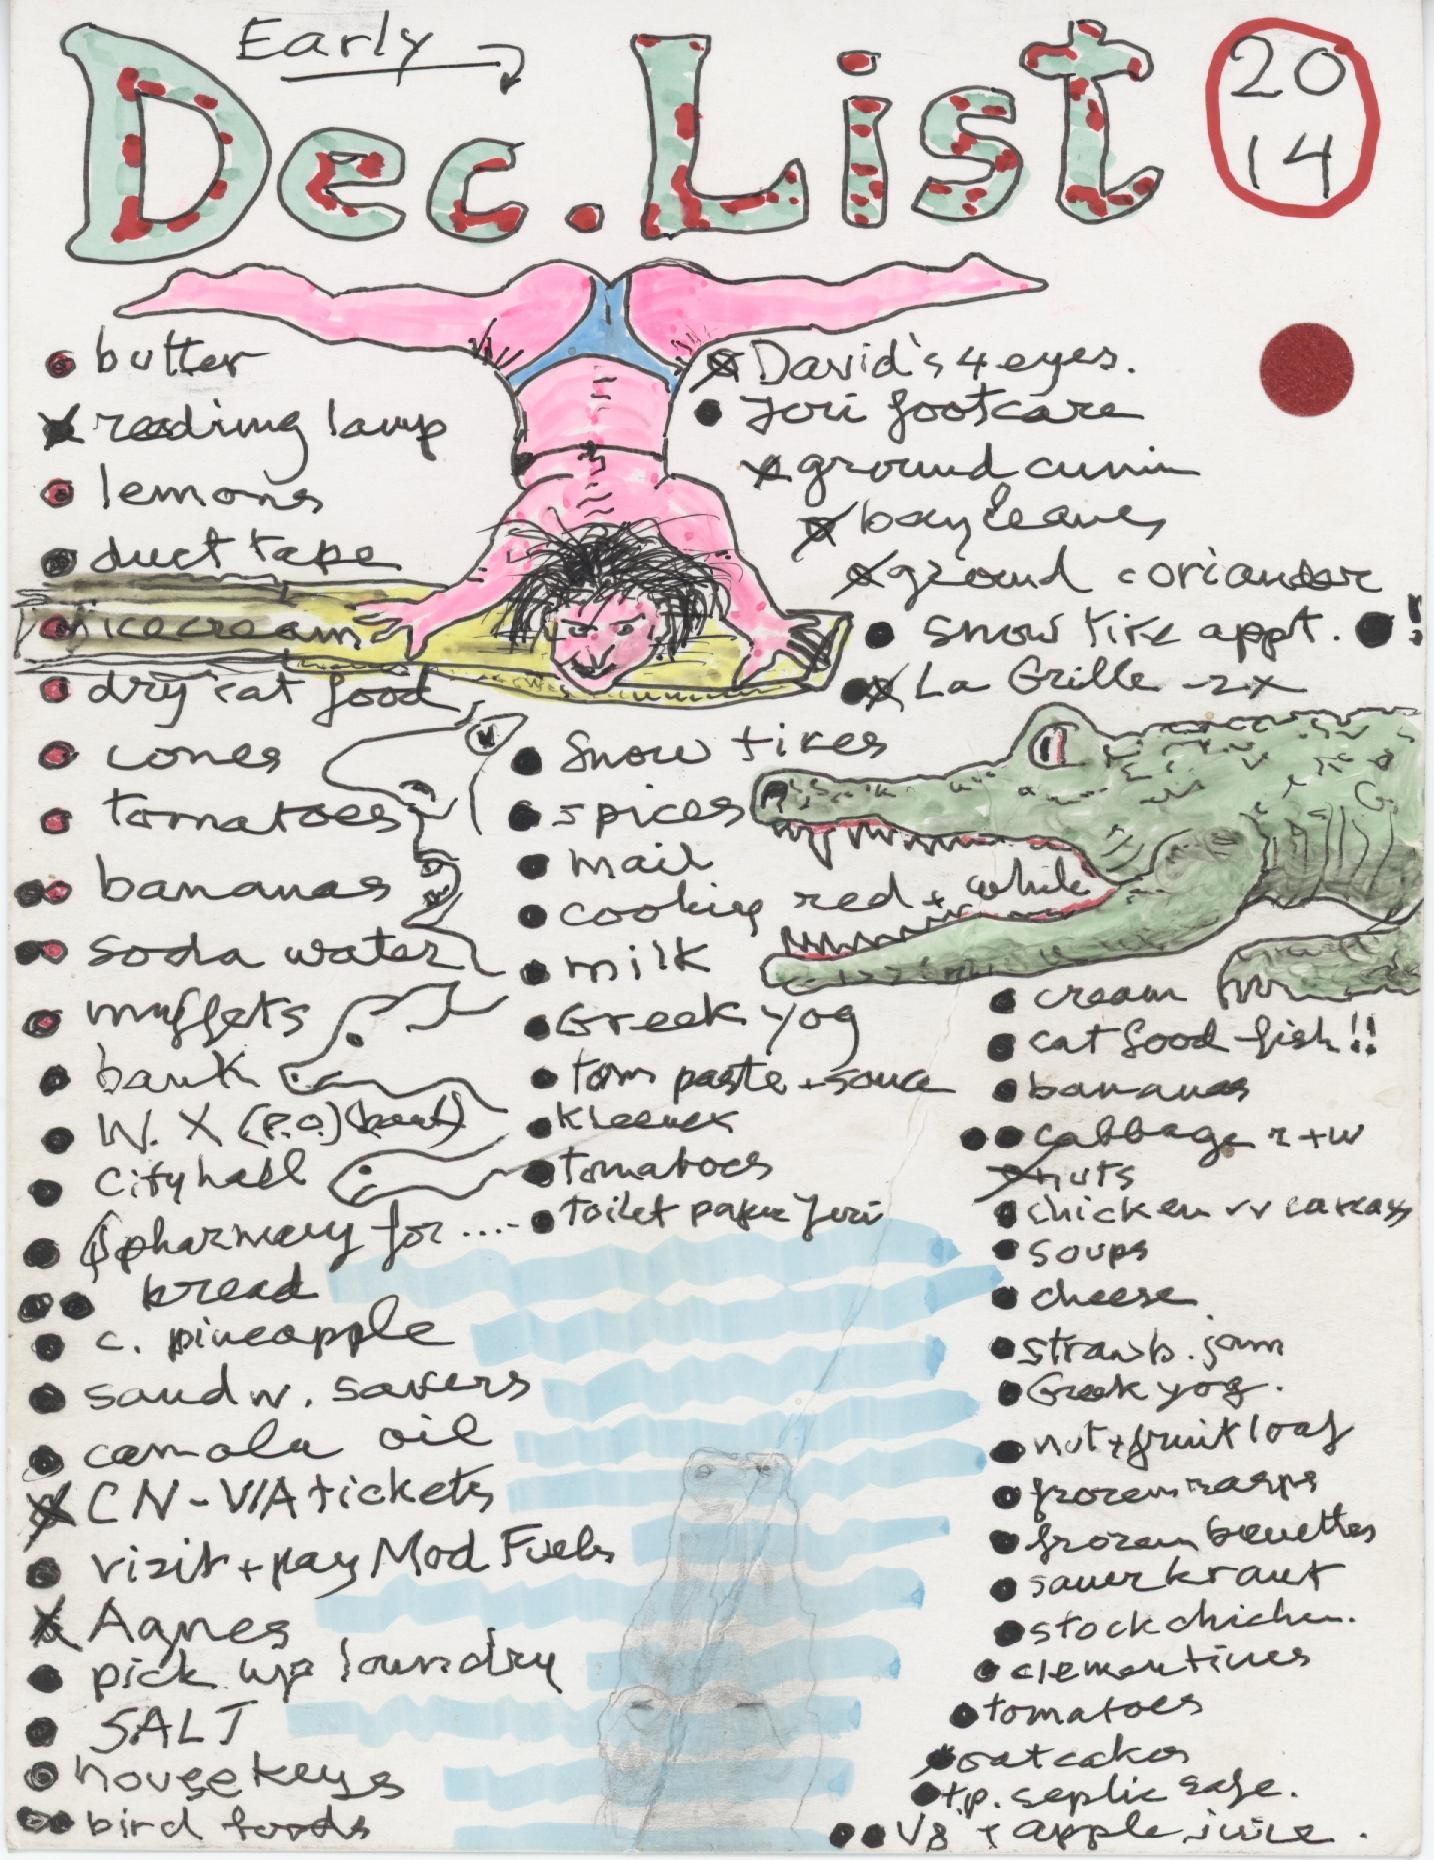 Early
Dec. List
20
14
butter
reading lamp
lemons
duct tape
icecream
dry cat food
cones
tomatoes
bananas
soda water
muffets
bank
W. X (P.O.) (bank)
city hall
pharmacy for ....
bread
c. pineapple
sandw. savers
canola oil
CN-VIA tickets
visit + pay Mod Fuels
Agnes
pick up laundry
SALT
house keys
bird foods
David's 4 eyes.
Jori footcare
ground cumin
bay leaves
ground coriander
snow tire appt. !
La Grille - 2x
Snow tires
spices
mail
cooking red + white
milk
Greek yog
tom paste + sauce
kleenex
tomatoes
toilet paper Jori
cream
cat food - fish!!
bananas
cabbage r + w
nuts
chicken vv carcass
soups
cheese
strawb. jam
Greek yog.
nut + fruit loaf
frozen rasps
frozen
sauerkraut
stock chicken.
clementines
tomatoes
oatcakes
t.p. septic safe.
V8 + apple juice.